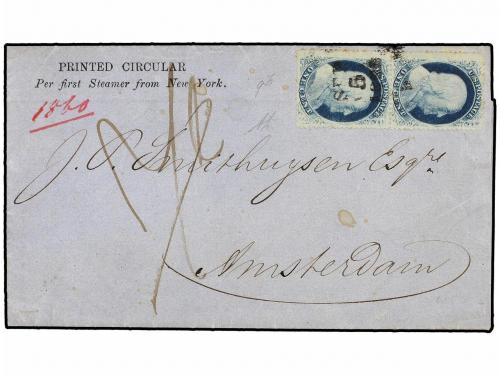 PRINTED CIRCULAR
Per first Steamer from New York.
1860
J. P. Smithuysen Esqre
Amsterdam